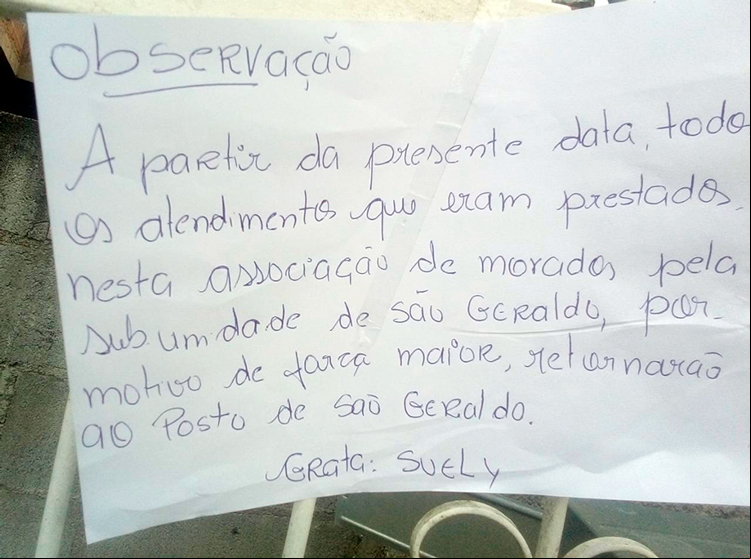 Observação
A partir da presente data, todo
os atendimentos que eram prestados
nesta associação de morados pela
sub.umidade de são Geraldo, por
motivo de força maior, retornarão
ao Posto de são Geraldo.
Grata: Suely